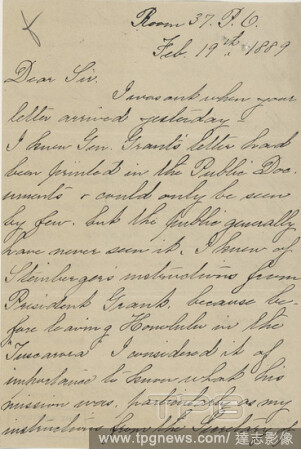 Room 37. P.O.
Feb. 19th 1889
Dear Sir.
I was out when your
letter arrived yesterday-
I knew Gen. Grant's letter had
been printed in the Public Doc-
uments & could only be seen
by few. but the public generally
have never seen it. I knew of
Steinberger's instructions from
President Grant. because be-
fore leaving Honolulu in the
Tuscarora I considered it of
importance to know what his
mission was, particularly as my
instructions from the Secretary of
TPG
www.tpgnews.com / 達志影像